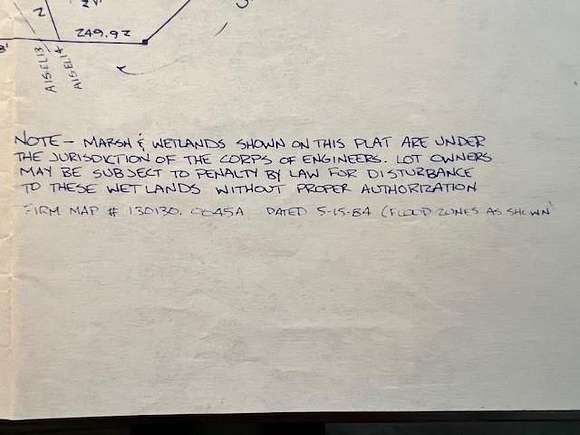 249.92
NOTE – MARSH & WETLANDS SHOWN ON THIS PLAT ARE UNDER
THE JURISDICTION OF THE CORPS OF ENGINEERS. LOT OWNERS
MAY BE SUBJECT TO PENALTY BY LAW FOR DISTURBANCE
TO THESE WETLANDS WITHOUT PROPER AUTHORIZATION
FIRM MAP # 130130. 0045A DATED 5-15-84 (FLOOD ZONES AS SHOWN